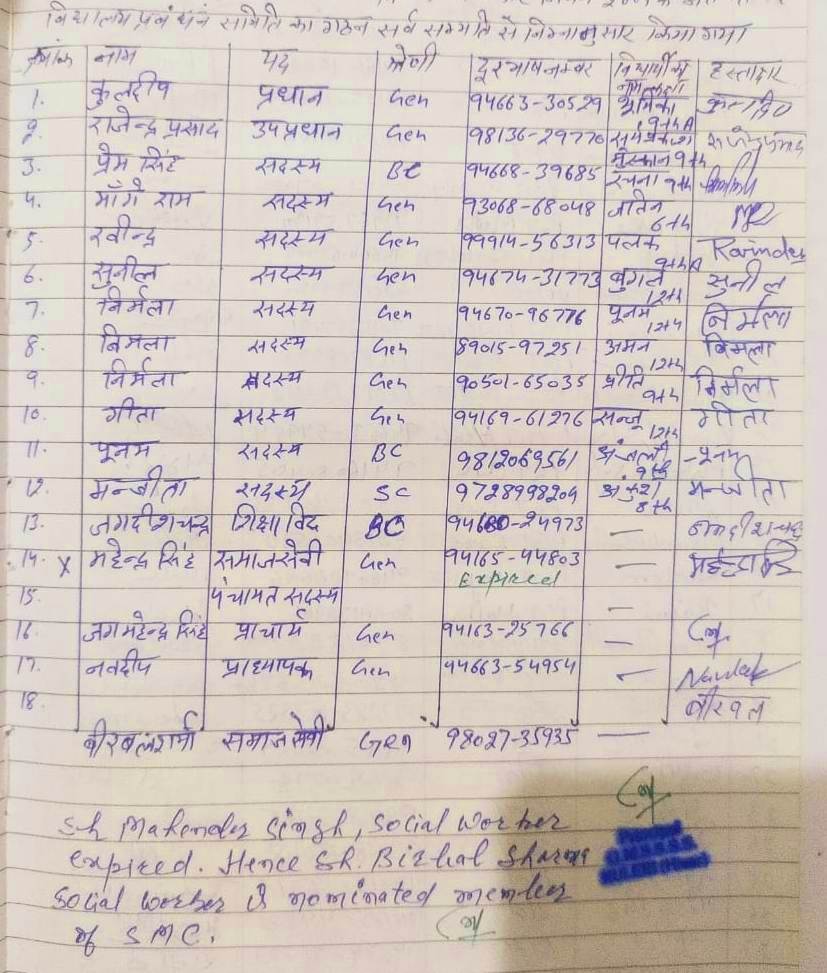 विद्यालय प्रबंधन समिति का गठन सर्व सम्मति से निम्नानुसार किया गया
क्रमांक नाम पद श्रेणी दूरभाष नम्बर विद्यार्थी का नाम कक्षा हस्ताक्षर
1. कुलदीप प्रधान Gen 94663-30529 9th A
2. राजेन्द्र प्रसाद उपप्रधान Gen 98136-29770
मुस्कान 9th
3. प्रेम सिंह सदस्य BC 94668-39685 रचना 9th
4. माँगे राम सदस्य Gen 93068-68048 जतिन 6th
5. रवीन्द्र सदस्य Gen 99914-56313 पलक 9th A Ravinder
6. सुनील सदस्य Gen 94674-31773 12th सुनील
7. निर्मला सदस्य Gen 94670-96776 पूनम 12th निर्मला
8. बिमला सदस्य Gen 89015-97251 अमन 12th बिमला
9. निर्मला सदस्य Gen 90501-65035 प्रीति 9th निर्मला
10. गीता सदस्य Gen 94169-61276 सन्जू 12th गीता
11. पूनम सदस्य BC 9812069561 9th पूनम
12. मन्जीता सदस्य SC 9728998204 8th मन्जीता
13. जगदीशचन्द्र शिक्षाविद BC 24973 — जगदीशचन्द्र
14. x महेन्द्र सिंह समाजसेवी Gen 94165-44803 —
Expired
15. पंचायत सदस्य —
16. जगमहेन्द्र सिंह प्राचार्य Gen 94163-25766 —
17. नवदीप प्राध्यापक Gen 94663-54954 — Navdeep
18. बीरबल
बीरबल शर्मा समाजसेवी Gen 98027-35935 —
Sh Mahender Singh, Social Worker
expired. Hence Sh. Birbal Sharma
Social worker is nominated member
of SMC.